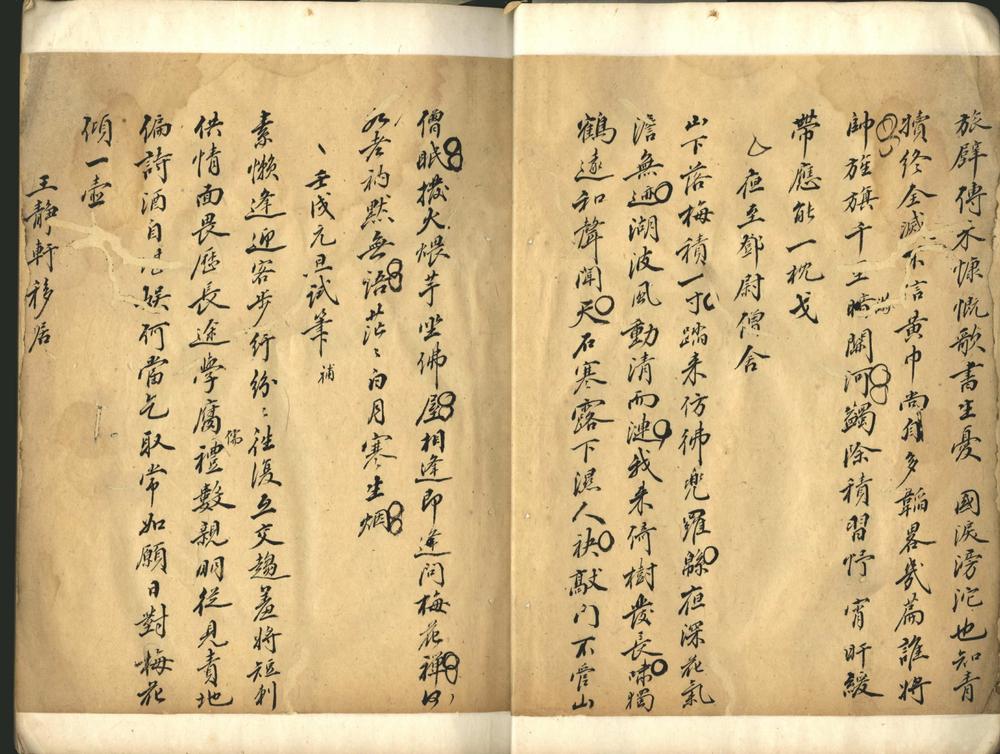 旅壁傳示慷慨歌書生憂國淚滂沱也知青
犢終全滅不信黃巾尚自多韜畧幾篇誰將
帥旌旗千里暗關河蠲除積習忬宵旰緩
帶應能一枕戈
夜至鄧尉僧舍
山下落梅積一寸踏来仿彿兜羅緜夜深花氣
澹無迹湖波風動清而漣我来倚樹發長嘯獨
鶴遠和聲聞天石寒露下濕人袂敲门不管山
僧眠撥火煨芋坐佛屋相逢即逢问梅花禪曰
老衲默無語茫〻白月寒生烟
壬戌元旦試筆 補
素懶逢迎客步行紛〻往復互交趨羞將短刺
供情面畏歷長途學腐儒禮數親朋從見責地
偏詩酒自娛何當乞取常如願日對梅花
傾一壺
王靜軒移居